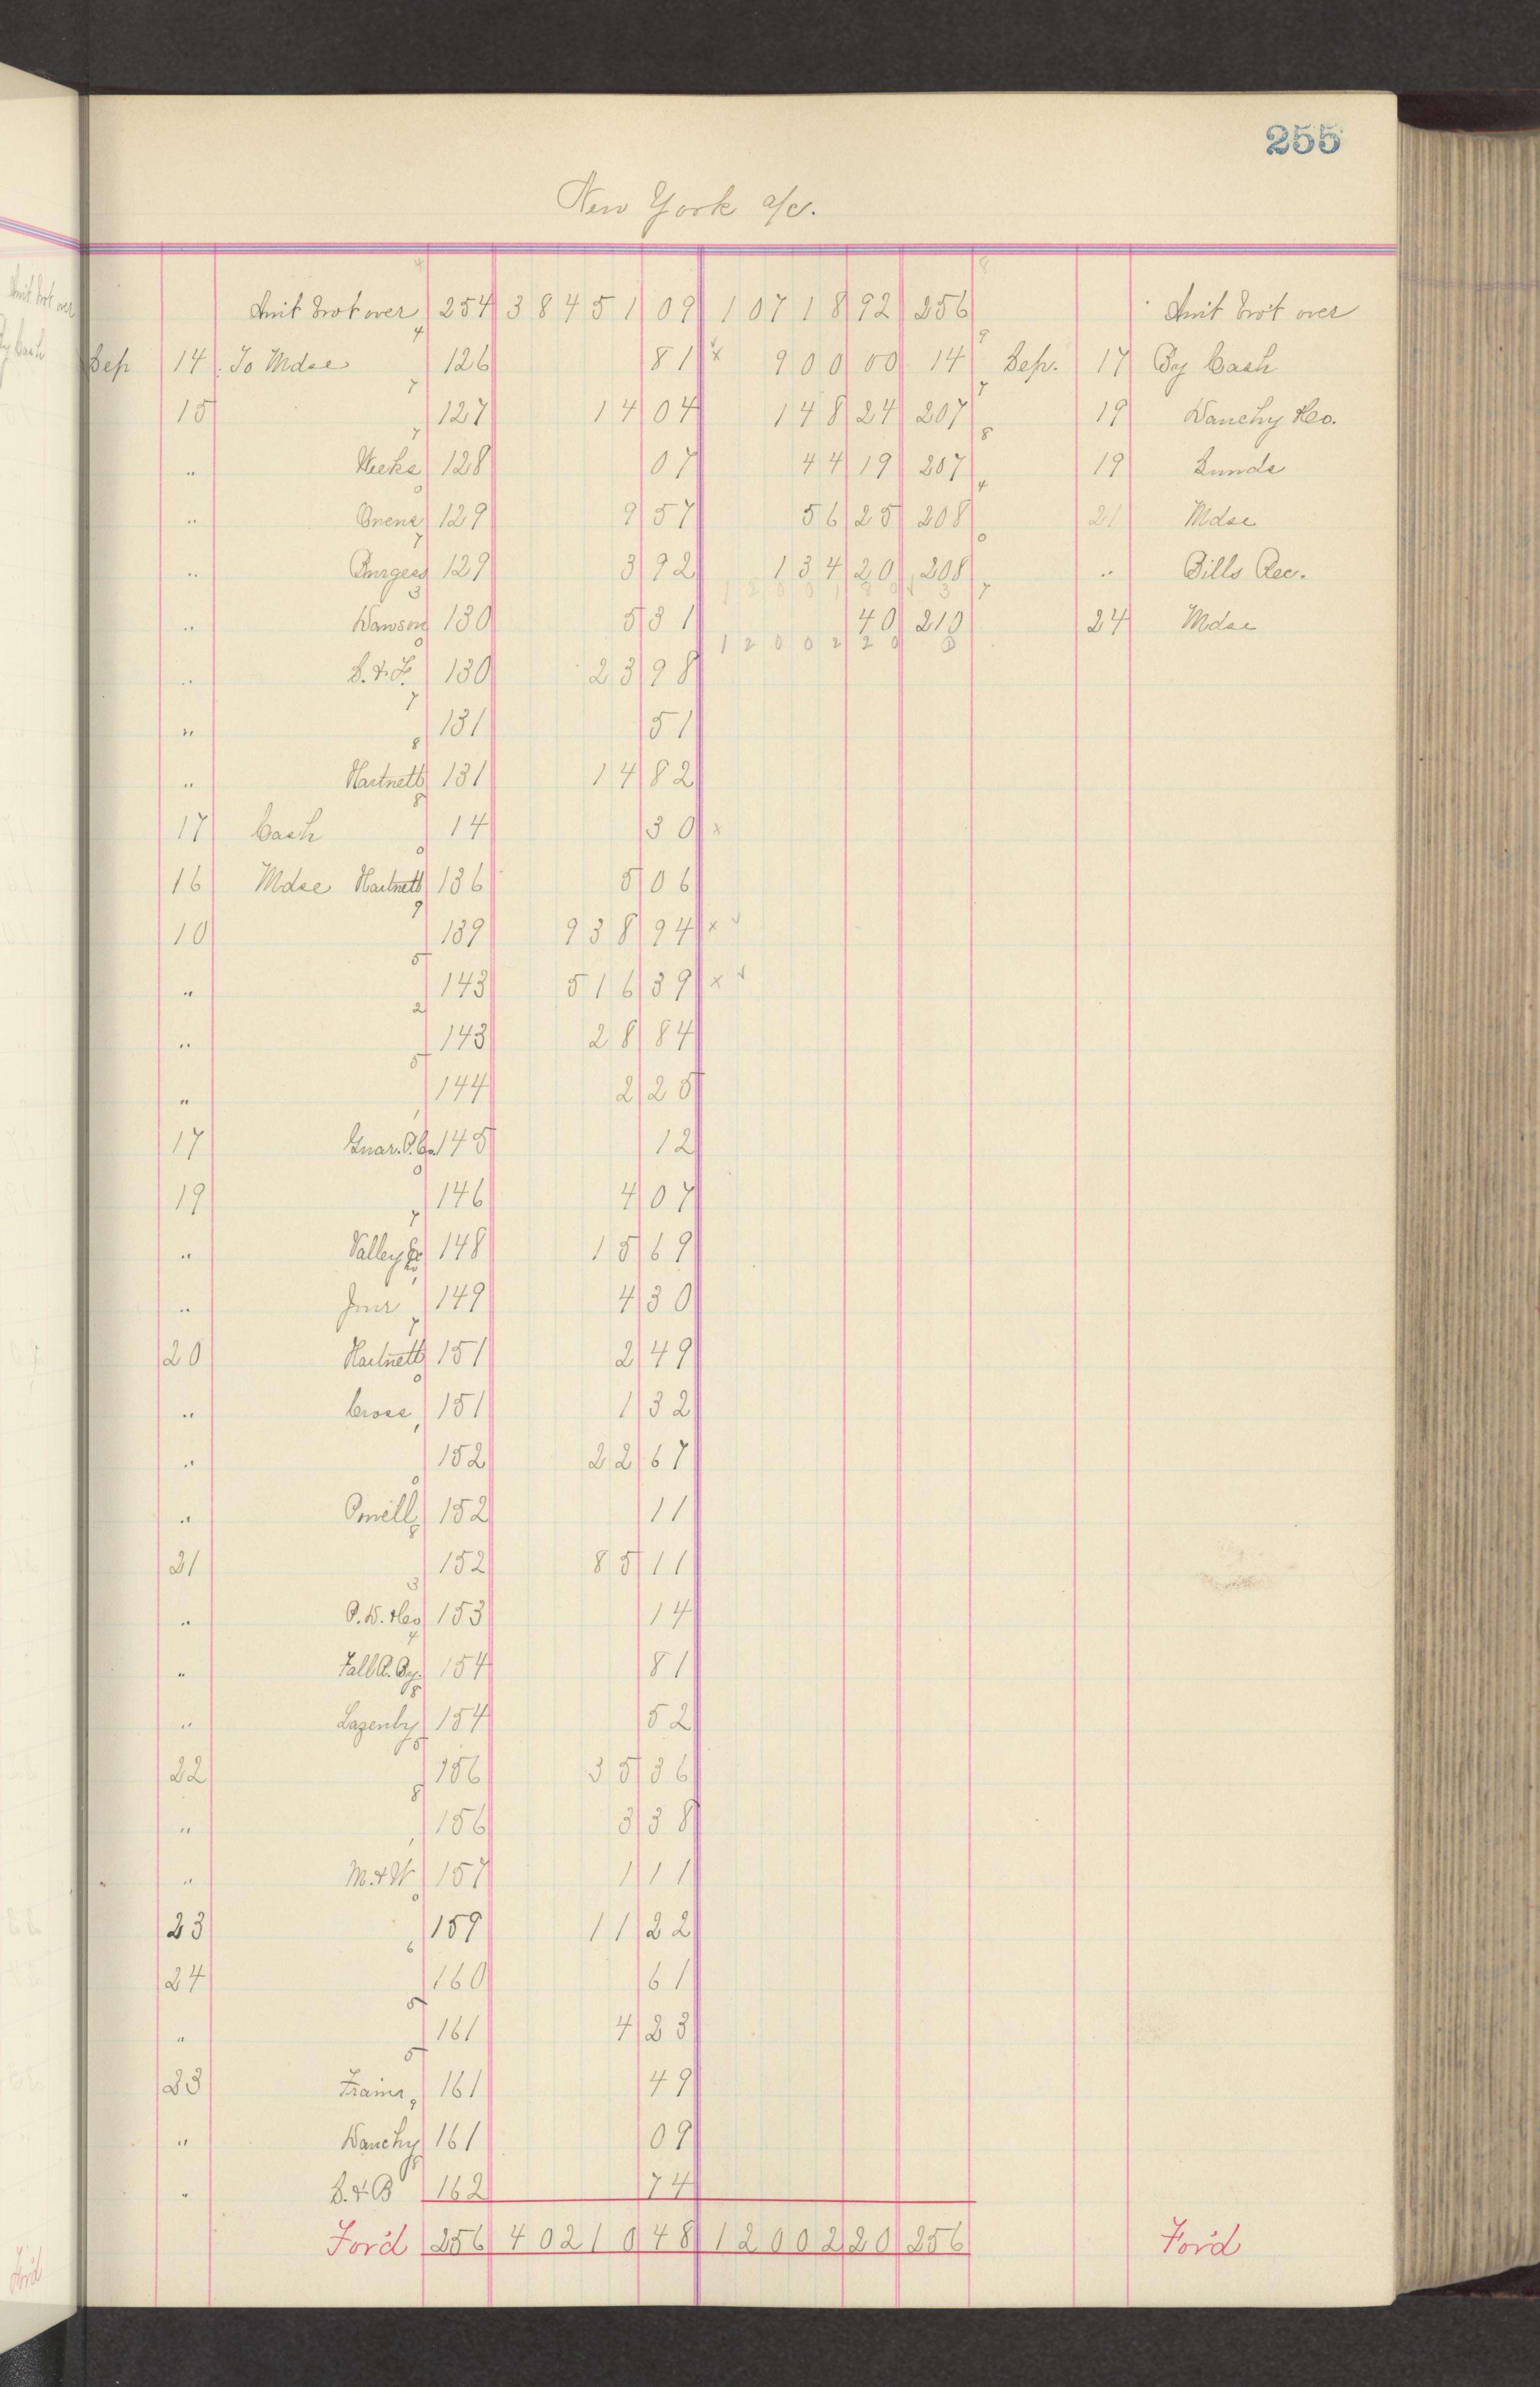 255
New York a/c.
Amt Brot over 254 38451 09 10718 92 256 Amt Brot over
Sep 14 To Mdse 126 81 x 900 00 14 Sep. 17 By Cash
15 127 14 04 148 24 207 19 Wanchy &Co.
" Weeks 128 07 44 19 207 19 Lunds
" Owens 129 9 57 56 25 208 21 Mdse
" Burgess 129 3 92 134 20 208 " Bills Rec.
12001 80
" Dawson 130 5 31 40 210 24 Mdse
12002 20
" S. & F. 130 23 98
" 131 51
" Hartnett 131 14 82
17 Cash 14 30 x
16 Mdse Hartnett 136 5 06
10 139 938 94 x
" 143 516 39 x
" 143 28 84
" 144 2 25
17 Guar. P. Co. 145 12
19 146 4 07
" Valley Co 148 15 69
" 149 4 30
20 Hartnett 151 2 49
" Cross 151 1 32
" 152 22 67
" 152 11
21 152 85 11
" P. D. &Co 153 14
" Fall R. By. 154 81
" Lazenby 154 52
22 156 35 36
" 156 3 38
" M. & W 157 1 11
23 159 11 22
24 160 61
" 161 4 23
23 Frains 161 49
" Wanchy 161 09
" S. & B 162 74
For'd 256 40210 48 12002 20 256 For'd